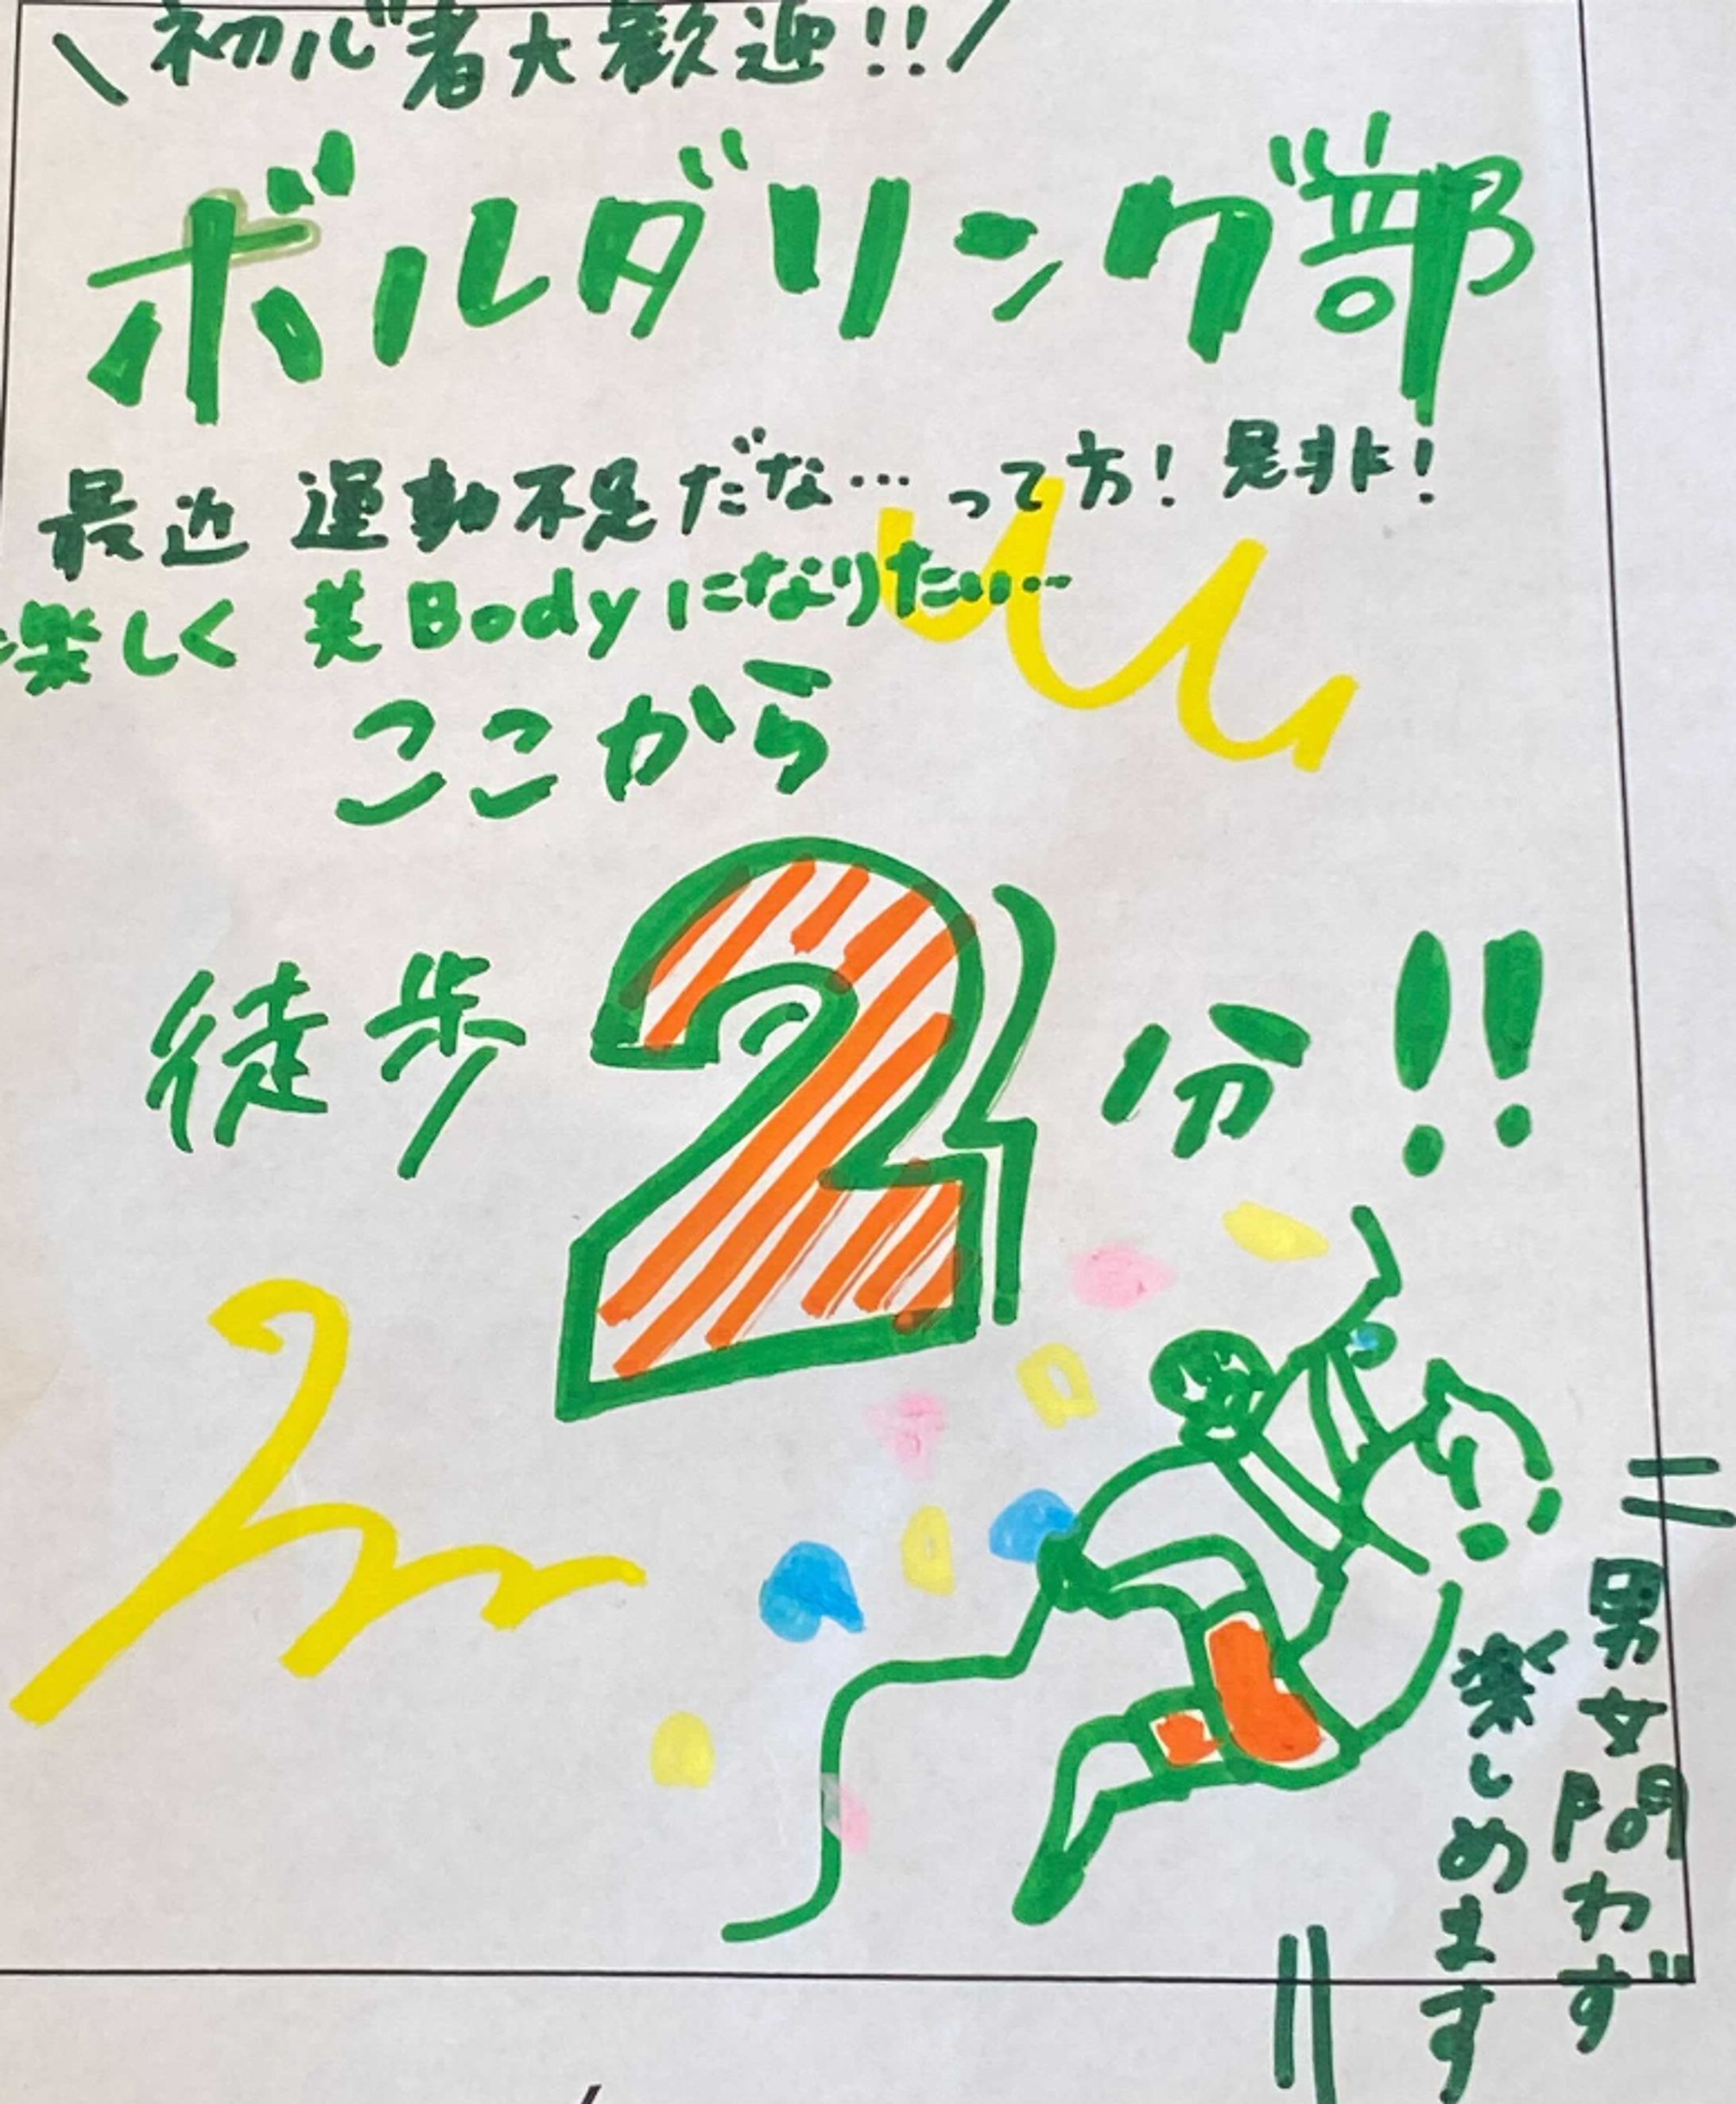 \初心者大歓迎!!/
ボルダリング部
最近 運動不足だな…って方!是非!
楽しく 美Bodyになりたい…
ここから
徒歩2分!!
男女問わず
楽しめます